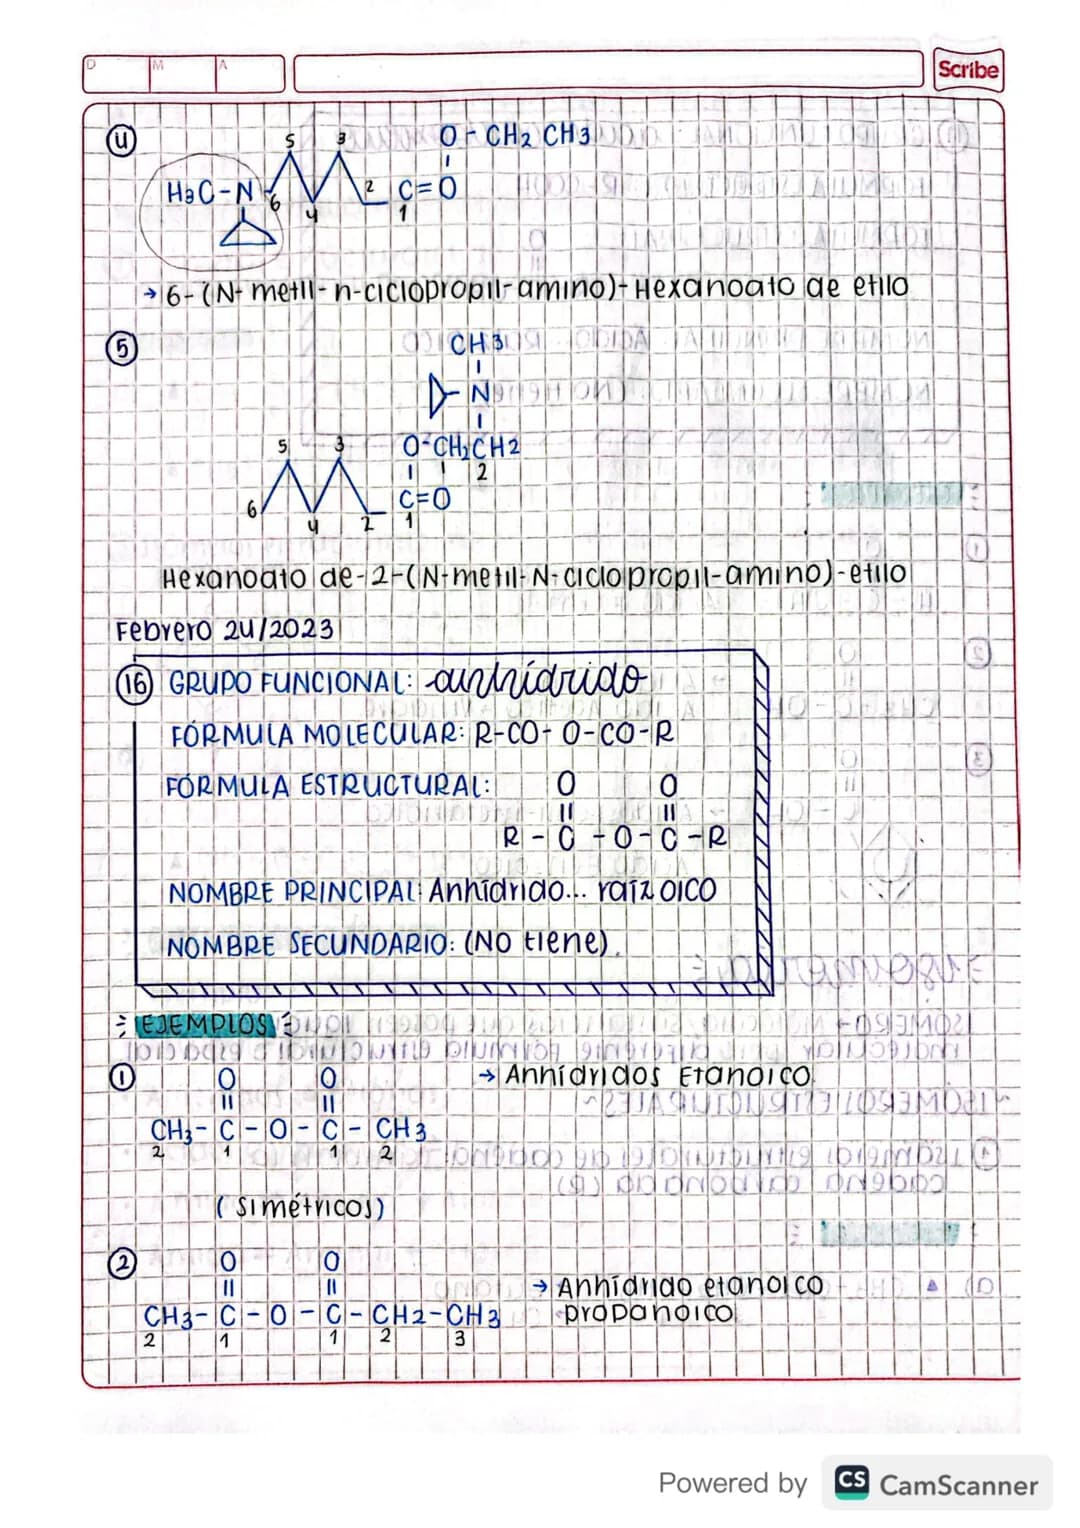 D M A
Scribe
4
5 3 O - CH2 CH3
H3C - N 6 4 2 C = O
1
→ 6-(N-metil-n-ciclopropil-amino)-Hexanoato de etilo
5
CH3
N
5 3 O-CH2CH2
1 2
6 4 2 C=O
1
Hexanoato de-2-(N-metil-N-ciclopropil-amino)-etilo
Febrero 24/2023
16 GRUPO FUNCIONAL: anhídrido
FÓRMULA MOLECULAR: R-CO-O-CO-R
FÓRMULA ESTRUCTURAL: O O
R - C - O - C - R
NOMBRE PRINCIPAL: Anhídrido... raíz oico
NOMBRE SECUNDARIO: (NO tiene).
EJEMPLOS
1 O O → Anhídridos Etanoico
CH3 - C - O - C - CH3
2 1 1 2
(simétricos)
2 O O → Anhídrido etanoico
CH3 - C - O - C - CH2 - CH3 propanoico
2 1 1 2 3
Powered by CS CamScanner